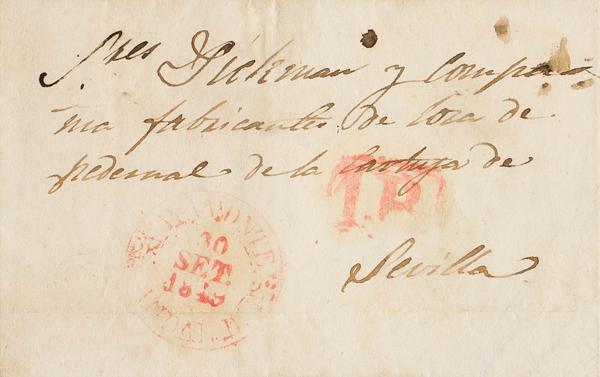 Sres Pickman y Compa
nia fabricantes de loza de
pedernal de la Cartuja de
Sevilla
30
SET.
1849